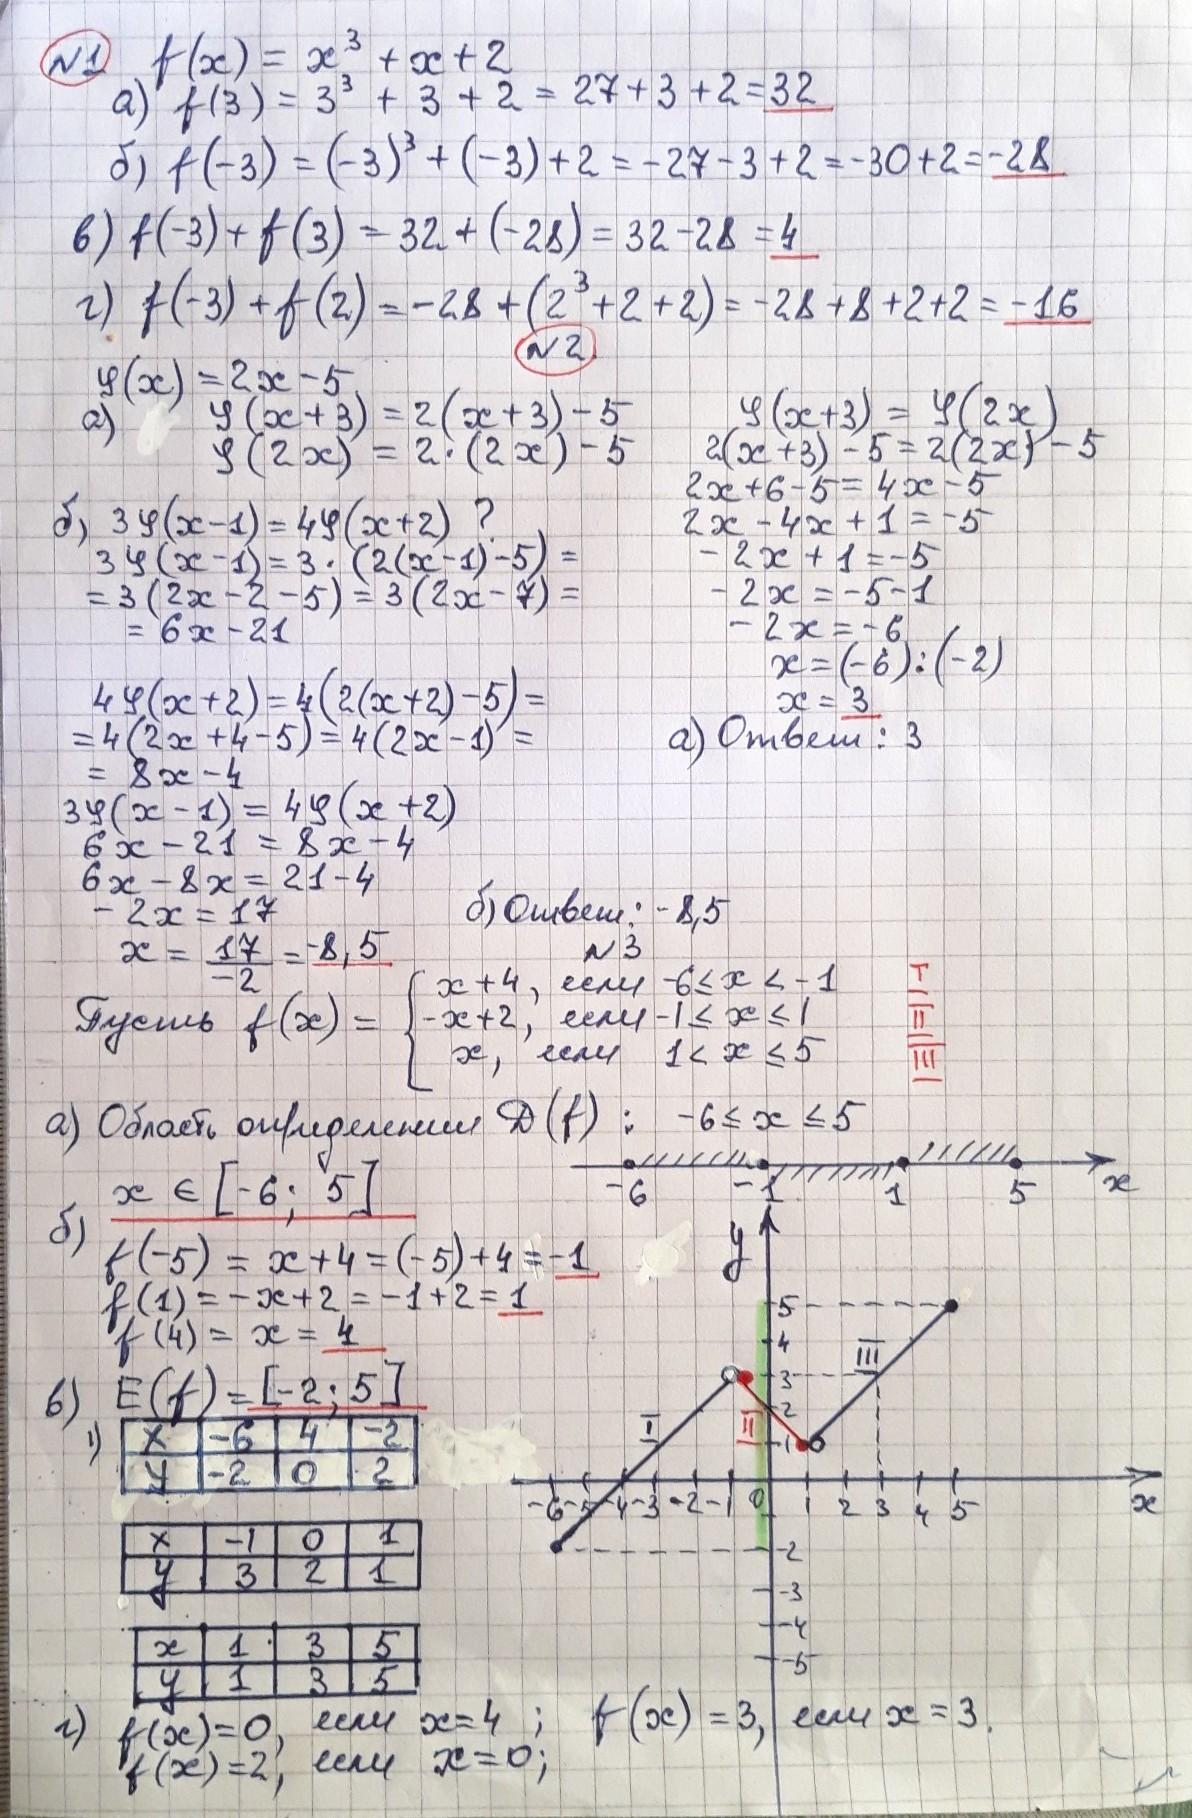 №1 f(x) = x³ + x + 2
а) f(3) = 3³ + 3 + 2 = 27 + 3 + 2 = 32
б) f(-3) = (-3)³ + (-3) + 2 = -27 - 3 + 2 = -30 + 2 = -28
в) f(-3) + f(3) = 32 + (-28) = 32 - 28 = 4
г) f(-3) + f(2) = -28 + (2³ + 2 + 2) = -28 + 8 + 2 + 2 = -16
№2
φ(x) = 2x - 5
а) φ(x+3) = 2(x+3) - 5
φ(2x) = 2·(2x) - 5
φ(x+3) = φ(2x)
2(x+3) - 5 = 2(2x) - 5
2x + 6 - 5 = 4x - 5
2x - 4x + 1 = -5
-2x + 1 = -5
-2x = -5 - 1
-2x = -6
x = (-6) : (-2)
x = 3
а) Ответ: 3
б) 3φ(x-1) = 4φ(x+2) ?
3φ(x-1) = 3·(2(x-1) - 5) =
= 3(2x - 2 - 5) = 3(2x - 7) =
= 6x - 21
4φ(x+2) = 4(2(x+2) - 5) =
= 4(2x + 4 - 5) = 4(2x - 1) =
= 8x - 4
3φ(x-1) = 4φ(x+2)
6x - 21 = 8x - 4
6x - 8x = 21 - 4
-2x = 17
x = 17/-2 = -8,5
б) Ответ: -8,5
№3
Пусть f(x) = { x+4, если -6 ≤ x < -1 I
-x+2, если -1 ≤ x ≤ 1 II
x, если 1 < x ≤ 5 III
а) Область определения D(f) : -6 ≤ x ≤ 5
-6 -1 1 5 x
x ∈ [-6; 5]
б) f(-5) = x + 4 = (-5) + 4 = -1
f(1) = -x + 2 = -1 + 2 = 1
f(4) = x = 4
в) E(f) = [-2; 5]
1) x -6 4 -2
y -2 0 2
x -1 0 1
y 3 2 1
x 1 3 5
y 1 3 5
y
5
4
3
2
1
I II III
-6 -5 -4 -3 -2 -1 0 1 2 3 4 5 x
-2
-3
-4
-5
г) f(x) = 0, если x = 4 ; f(x) = 3, если x = 3.
f(x) = 2, если x = 0;